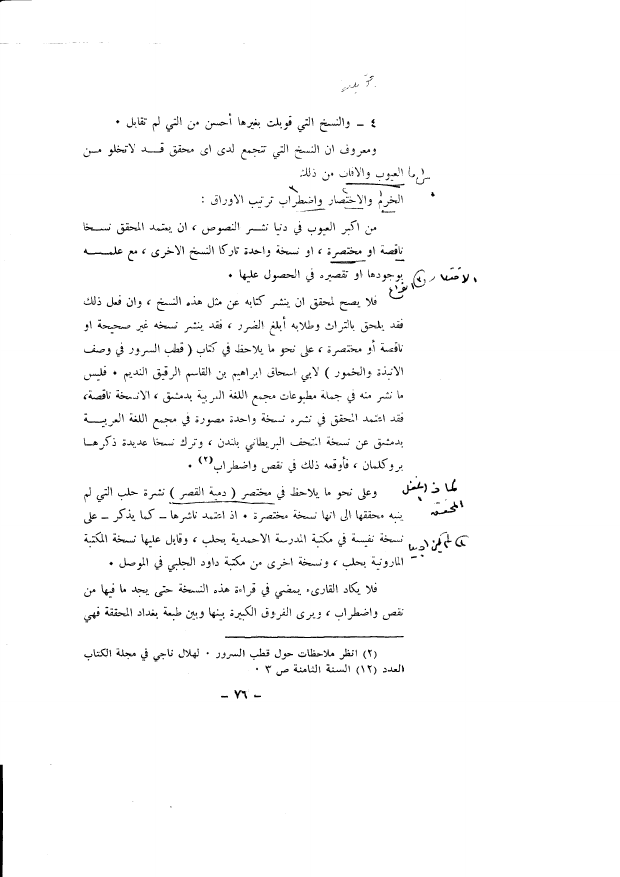 ٤ ــ والنسخ التي قوبلت بغيرها أحسن من التي لم تقابل ٠
ومعروف ان النسخ التي تتجمع لدى اى محقق قـــد لاتخلو مــن
العيوب والآفات من ذلك
الخرم والاختصار واضطراب ترتيب الاوراق :
من اكبر العيوب في دنيا نشــر النصوص ، ان يعتمد المحقق نسـخا
ناقصة او مختصرة ، او نسخة واحدة تاركا النسخ الاخرى ، مع علمـــه
بوجودها او تقصيره في الحصول عليها ٠
فلا يصح لمحقق ان ينشر كتابه عن مثل هذه النسخ ، وان فعل ذلك
فقد يلحق بالتراث وطلابه أبلغ الضرر ، فقد ينشر نسخه غير صحيحة او
ناقصة أو مختصرة ، على نحو ما يلاحظ في كتاب ( قطب السرور في وصف
الانبذة والخمور ) لابي اسحاق ابراهيم بن القاسم الرقيق النديم ٠ فليس
ما نشر منه في جملة مطبوعات مجمع اللغة العربية بدمشق ، الانسخة ناقصة،
فقد اعتمد المحقق في نشره نسخة واحدة مصورة في مجمع اللغة العربيـــة
بدمشق عن نسخة المتحف البريطاني بلندن ، وترك نسخا عديدة ذكرهـا
بروكلمان ، فأوقعه ذلك في نقص واضطراب(٢) ٠
وعلى نحو ما يلاحظ في مختصر ( دمية القصر ) نشرة حلب التي لم
ينبه محققها الى انها نسخة مختصرة ٠ اذ اعتمد ناشرها ــ كما يذكر ــ على
نسخة نفيسة في مكتبة المدرسة الاحمدية بحلب ، وقابل عليها نسخة المكتبة
المارونية بحلب ، ونسخة اخرى من مكتبة داود الجلبي في الموصل ٠
فلا يكاد القارىء يمضي في قراءة هذه النسخة حتى يجد ما فيها من
نقص واضطراب ، ويرى الفروق الكبيرة بينها وبين طبعة بغداد المحققة فهي
(٢) انظر ملاحظات حول قطب السرور ٠ لهلال ناجي في مجلة الكتاب
العدد (١٢) السنة الثامنة ص ٣ ٠
ــ ٧٦ ــ